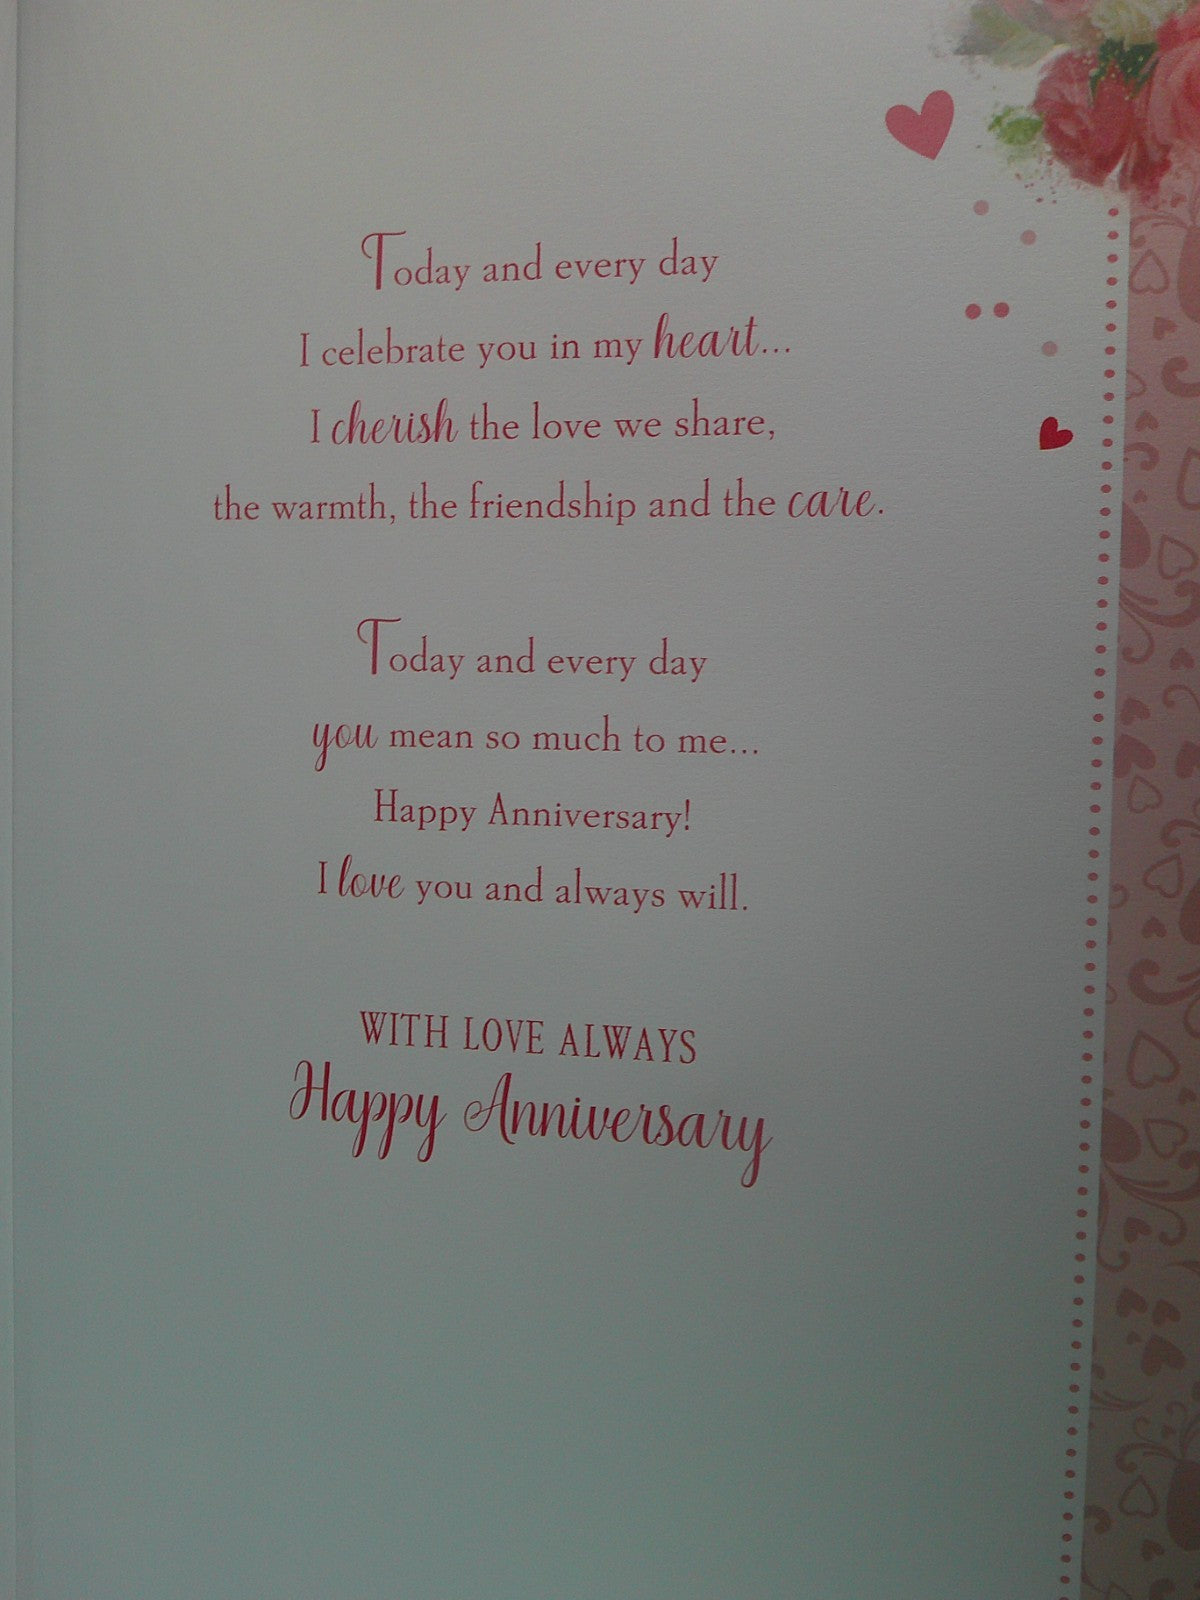 Today and every day
I celebrate you in my heart...
I cherish the love we share,
the warmth, the friendship and the care.
Today and every day
you mean so much to me...
Happy Anniversary!
I love you and always will.
WITH LOVE ALWAYS
Happy Anniversary